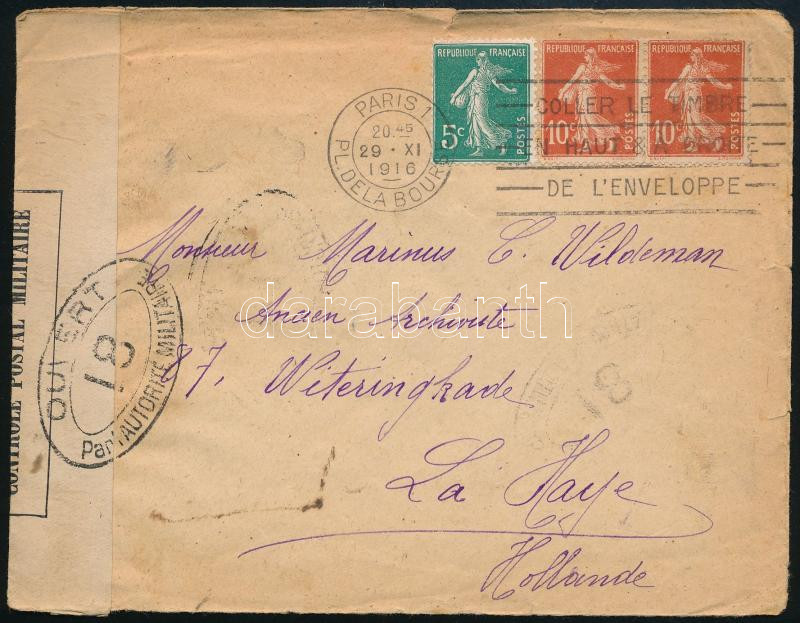 REPUBLIQUE FRANÇAISE
5c POSTES
REPUBLIQUE FRANÇAISE
10c POSTES
REPUBLIQUE FRANÇAISE
10c POSTES
PARIS 1
20 45
29 · XI
1916
PL. DE LA BOURSE
COLLER LE TIMBRE
EN HAUT & A DROITE
DE L'ENVELOPPE
Monsieur Marinus C. Wildeman
Ancien Archiviste
87, Witeringkade
La Haye
Hollande
CONTRÔLE POSTAL MILITAIRE
OUVERT
18
Par l'AUTORITÉ MILITAIRE
18
darabanth